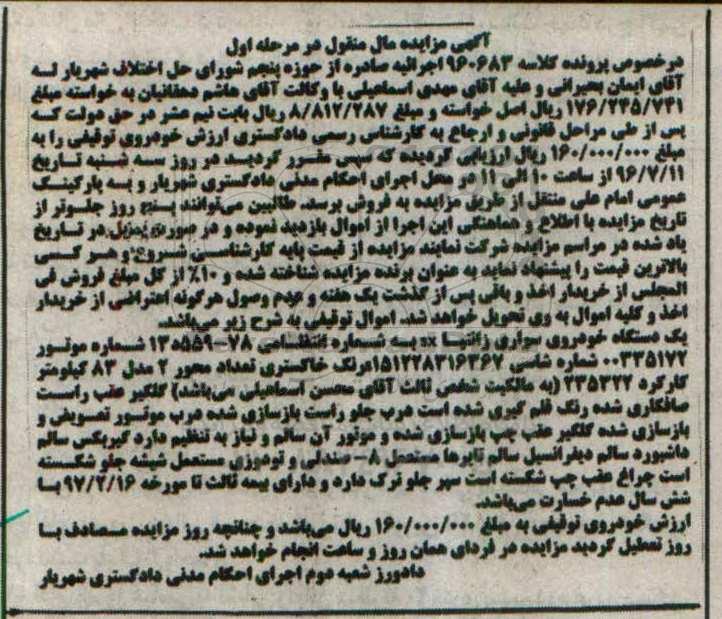 آگهی مزایده مال منقول در مرحله اول
درخصوص پرونده کلاسه ۹۶۰۶۸۳ اجرائیه صادره از حوزه پنجم شورای حل اختلاف شهریار لـه
آقای ایمان بحیرانی و علیه آقای مهدی اسماعیلی با وکالت آقای هاشم دهقانیان به خواسته مبلغ
۱۷۶/۲۴۵/۷۴۱ ریال اصل خواسته و مبلغ ۸/۸۱۲/۲۸۷ ریال بابت نیم عشر در حق دولت کـه
پس از طی مراحل قانونی و ارجاع به کارشناس رسمی دادگستری ارزش خودروی توقیفی را به
مبلغ ۱۶۰/۰۰۰/۰۰۰ ریال ارزیابی گردیده که سپس مقـرر گردیـد در روز سـه شـنبه تـاریخ
۹۶/۷/۱۱ از ساعت ۱۰ الی ۱۱ در محل اجرای احکام مدنی دادگستری شهریار و بـه پارکینـگ
عمومی امام علی منتقل از طریق مزایده به فروش برسد. طالبین می‌توانند پـنج روز جلـوتر از
تاریخ مزایده با اطلاع و هماهنگی این اجرا از اموال بازدید نموده و در صورت تمایل در تـاریخ
یاد شده در مراسم مزایده شرکت نمایند مزایده از قیمت پایه کارشناسـی شـروع و هـر کـسی
بالاترین قیمت را پیشنهاد نماید به عنوان برنده مزایده شناخته شده و ۱۰٪ از کل مبلغ فروش فی
المجلس از خریدار اخذ و باقی پس از گذشت یک هفته و عدم وصول هرگونه اعتراضی از خریدار
اخذ و کلیه اموال به وی تحویل خواهد شد. اموال توقیفی به شرح زیر می‌باشد.
یک دستگاه خودروی سواری زانتیـا sx بـه شـماره انتظـامی ۷۸-۵۵۹د۱۳ شـماره موتـور
۰۰۳۳۵۱۷۲ شماره شاسی ۱۵۱۲۲۸۳۱۶۳۶۷ رنگ خاکستری تعداد محور ۲ مدل ۸۳ کیلومتر
کارکرد ۲۳۵۳۲۲ (به مالکیت شخص ثالث آقای محسن اسماعیلی می‌باشد) گلگیر عقب راسـت
صافکاری شده رنگ قلم گیری شده است درب جلو راست بازسازی شده درب موتـور تعـویض و
بازسازی شده گلگیر عقب چپ بازسازی شده و موتور آن سالم و نیاز به تنظیم دارد گیربکس سالم
داشبورد سالم دیفرانسیل سالم تایرها مستعمل ۸- صندلی و تودوزی مستعمل شیشه جلو شکسته
است چراغ عقب چپ شکسته است سپر جلو ترک دارد و دارای بیمه ثالث تا مورخه ۹۷/۲/۱۶ بـا
شش سال عدم خسارت می‌باشد.
ارزش خودروی توقیفی به مبلغ ۱۶۰/۰۰۰/۰۰۰ ریال می‌باشد و چنانچه روز مزایده مـصادف بـا
روز تعطیل گردید مزایده در فردای همان روز و ساعت انجام خواهد شد.
دادورز شعبه دوم اجرای احکام مدنی دادگستری شهریار